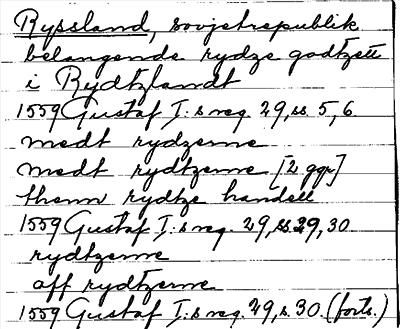 Ryssland, sovjetrepublik
belangende rydze godtzett
i Rydtzlandt
1559 Gustaf I:s reg. 29, ss. 5, 6.
medt rydzerne
medt rydtzerne [2 ggr]
thenn rydtze handell
1559 Gustaf I:s reg. 29, ss. 29, 30
rydtzerne
aff rydtzerne
1559 Gustaf I:s reg. 29, s. 30. (forts.)